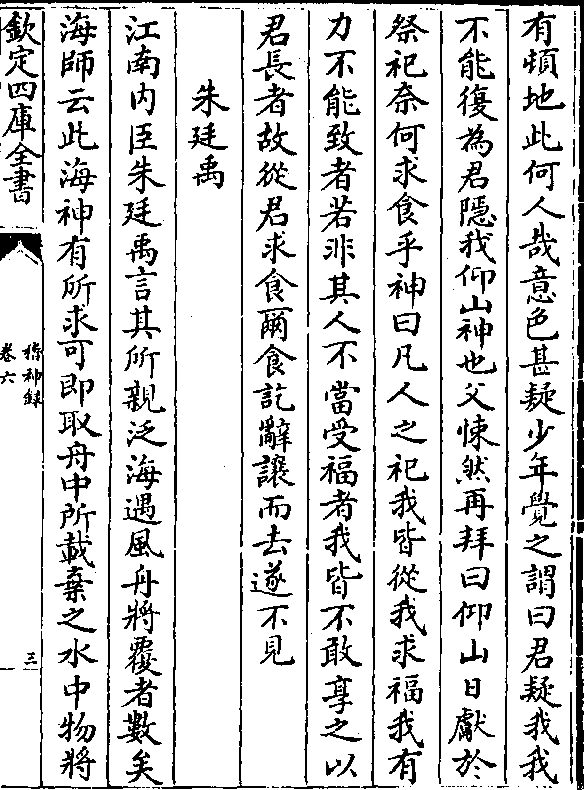 有頓地此何人哉意色甚疑少年覺之謂曰君疑我我
不能復為君隱我仰山神也父悚然再拜曰仰山日獻於
祭祀奈何求食乎神曰凡人之祀我皆從我求福我有
力不能致者若非其人不當受福者我皆不敢享之以
君長者故從君求食爾食訖辭讓而去遂不見
朱廷禹
江南内臣朱廷禹言其所親泛海遇風舟將覆者數矣
海師云此海神有所求可即取舟中所載棄之水中物將
欽定四庫全書
稽神錄
卷六
三